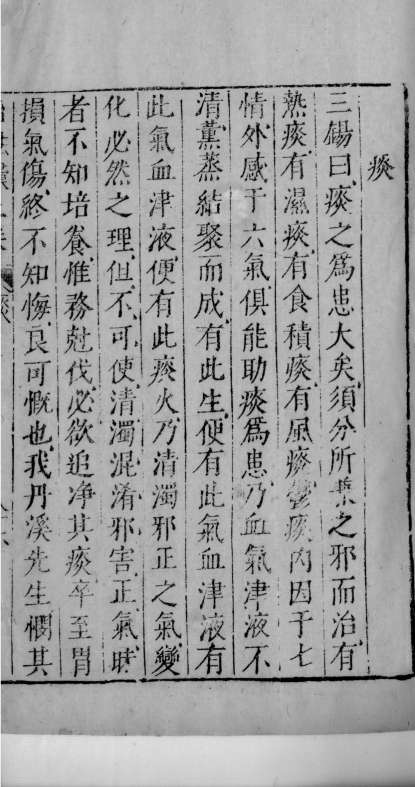 痰
三錫曰痰之爲患大矣須分所兼之邪而治有
熱痰有濕痰有食積痰有風痰鬱痰内因于七
情外感于六氣俱能助痰爲患乃血氣津液不
清薰蒸結聚而成有此生便有此氣血津液有
此氣血津液便有此痰火乃清濁邪正之氣變
化必然之理但不可使清濁混淆邪害正氣
者不知培養惟務尅伐必欲追净其痰卒至胃
損氣傷終不知悔良可慨也我丹溪先生憫其